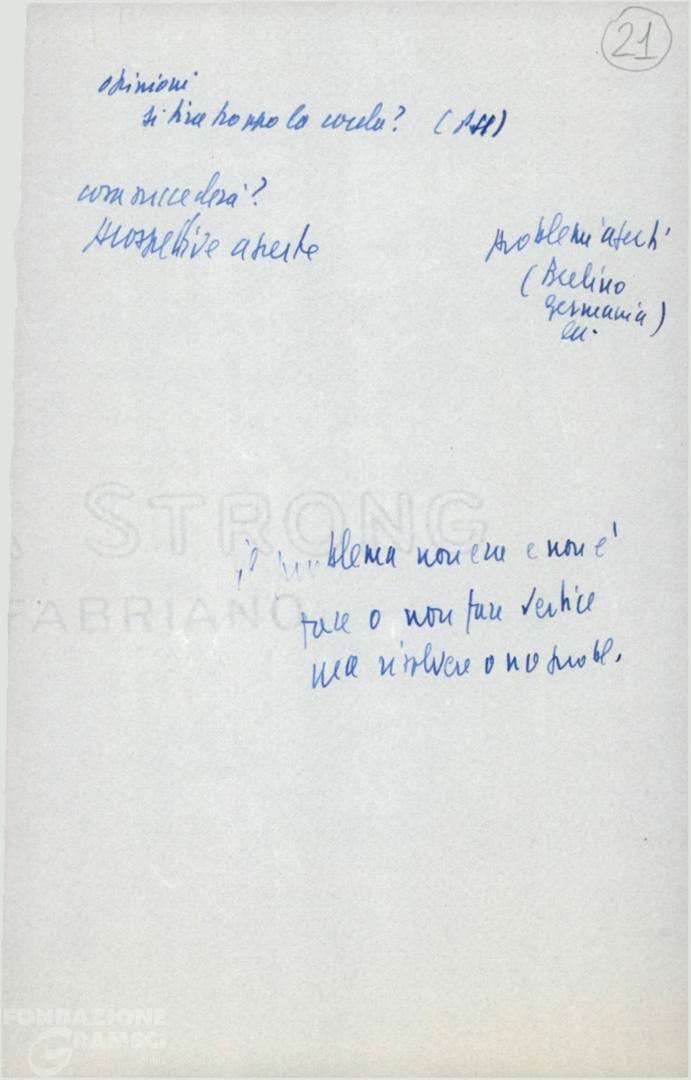 21
opinioni
si tira troppo la corda? (PSI)
cosa succederà?
prospettive aperte
problemi aperti
(Berlino
Germania)
ecc.
STRONG
FABRIANO
il problema non era e non è
fare o non fare vertice
ma risolvere o no probl.
FONDAZIONE
GRAMSCI